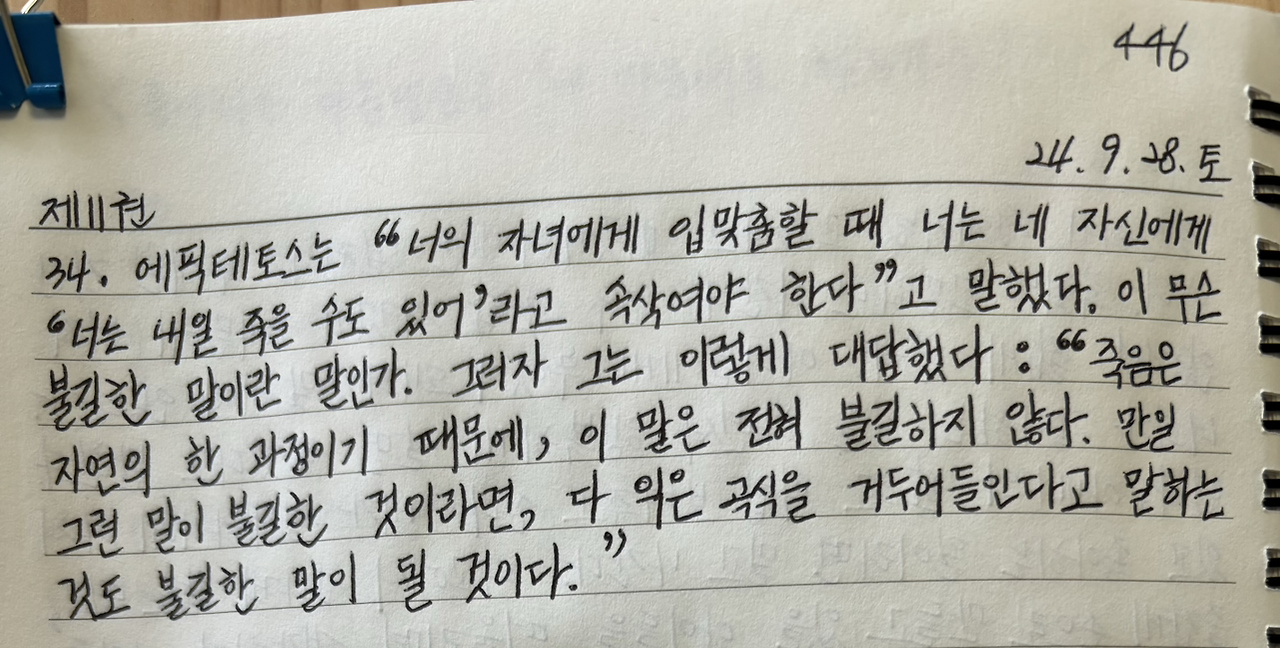 446
24. 9. 28. 토
제11권
34. 에픽테토스는 “너의 자녀에게 입맞춤할 때 너는 네 자신에게
‘너는 내일 죽을 수도 있어’라고 속삭여야 한다”고 말했다. 이 무슨
불길한 말이란 말인가. 그러자 그는 이렇게 대답했다 : “죽음은
자연의 한 과정이기 때문에, 이 말은 전혀 불길하지 않다. 만일
그런 말이 불길한 것이라면, 다 익은 곡식을 거두어들인다고 말하는
것도 불길한 말이 될 것이다.”